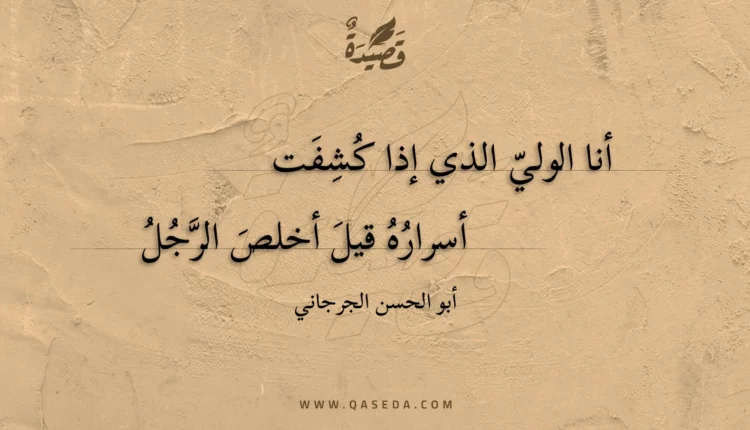 قَصِيْدَةٌ
أنا الوليّ الذي إذا كُشِفَت
أسرارُهُ قيلَ أخلصَ الرَّجُلُ
أبو الحسن الجرجاني
WWW.QASEDA.COM